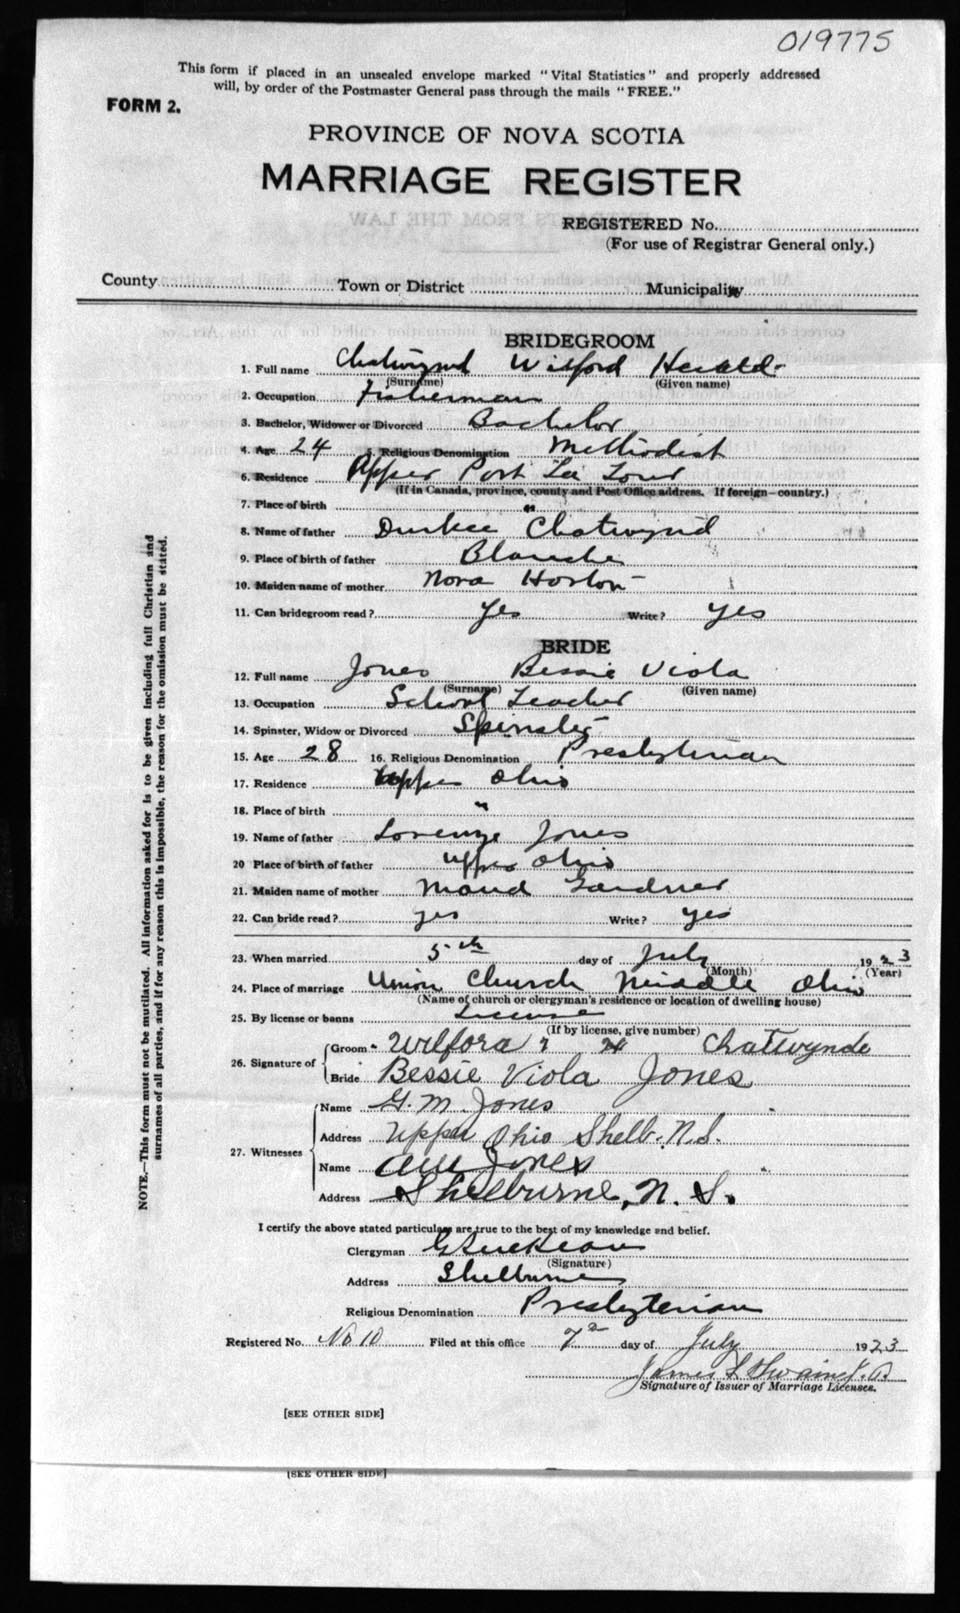 019775
This form if placed in an unsealed envelope marked "Vital Statistics" and properly addressed
will, by order of the Postmaster General pass through the mails "FREE."
FORM 2.
PROVINCE OF NOVA SCOTIA
MARRIAGE REGISTER
REGISTERED No.
(For use of Registrar General only.)
County Town or District Municipality
BRIDEGROOM
1. Full name Chatwynd Wilford Herald
(Surname) (Given name)
2. Occupation Fisherman
3. Bachelor, Widower or Divorced Bachelor
4. Age 24 5. Religious Denomination Methodist
6. Residence Upper Port La Tour
(If in Canada, province, county and Post Office address. If foreign—country.)
7. Place of birth "
8. Name of father Durkee Chatwynd
9. Place of birth of father Blanche
10. Maiden name of mother Nora Horton
11. Can bridegroom read? Yes Write? Yes
BRIDE
12. Full name Jones Bessie Viola
(Surname) (Given name)
13. Occupation School Teacher
14. Spinster, Widow or Divorced Spinster
15. Age 28 16. Religious Denomination Presbyterian
17. Residence Upper Ohio
18. Place of birth "
19. Name of father Lorenzo Jones
20 Place of birth of father Upper Ohio
21. Maiden name of mother Maud Gardner
22. Can bride read? yes Write? yes
23. When married 5th day of July 1923
(Month) (Year)
24. Place of marriage Union Church Middle Ohio
(Name of church or clergyman's residence or location of dwelling house)
25. By license or banns License
(If by license, give number)
26. Signature of Groom Wilford H Chatwynde
Bride Bessie Viola Jones
27. Witnesses Name G. M. Jones
Address Upper Ohio Shelb. N.S.
Name Jones
Address Shelburne, N. S.
I certify the above stated particulars are true to the best of my knowledge and belief.
Clergyman
(Signature)
Address Shelburne
Religious Denomination Presbyterian
Registered No. No 10 Filed at this office 7th day of July 1923
James Swaine J.P.
Signature of Issuer of Marriage Licenses.
[SEE OTHER SIDE]
[SEE OTHER SIDE]
NOTE.—This form must not be mutilated. All information asked for is to be given including full Christian and
surnames of all parties, and if for any reason this is impossible, the reason for the omission must be stated.